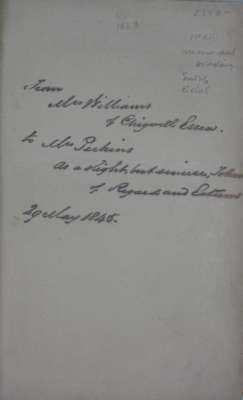 From
Mrs Williams
of Chigwell Essex.
to Mrs Perkins
as a slight, but sincere, Token
of Regard and Esteem
29 May 1845.